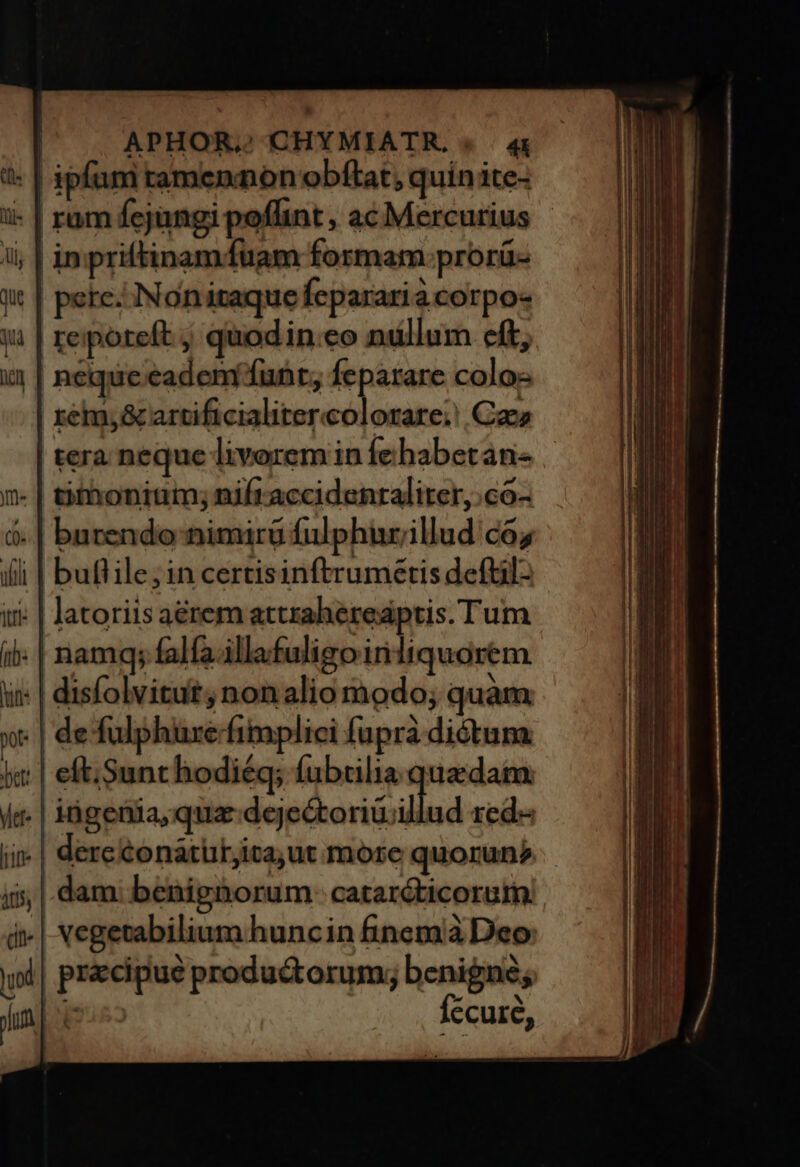 APHOR. CHYMIATR. 41
ipſum tamen non obſtat, quin ite-
rum ſejungi poſſint, ac Mercurius
in priſtinam ſuam formam prorū-
pere. Non itaque ſeparari à corpo-
re poteſt, quod in eo nullum eſt,
neque eadem ſunt, ſeparare colo-
rem, & artificialiter colorare. Cæ-
tera neque livorem in ſe habet an-
timonium, niſi accidentaliter, cō-
burendo nimirū ſulphur illud cō-
buſtile, in certis inſtrumētis deſtil-
latoriis aërem attrahere aptis. Tum
namq; ſalſa illa fuligo in liquorem
disſolvitur, non alio modo, quàm
de ſulphure ſimplici ſuprà dictum
eſt. Sunt hodiéq; ſubtilia quædam
ingenia, quæ dejectoriū illud red-
dere conātur, ita, ut more quorun-
dam benignorum catarcticorum
vegetabilium hunc in finem à Deo
præcipuè productorum, benignè,
ſecurè,